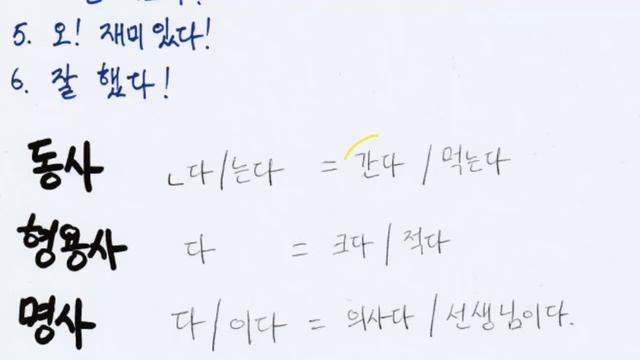 5. 오! 재미있다!
6. 잘 했다!
동사 ㄴ다/는다 = 간다 / 먹는다
형용사 다 = 크다 / 적다
명사 다/이다 = 의사다 / 선생님이다.